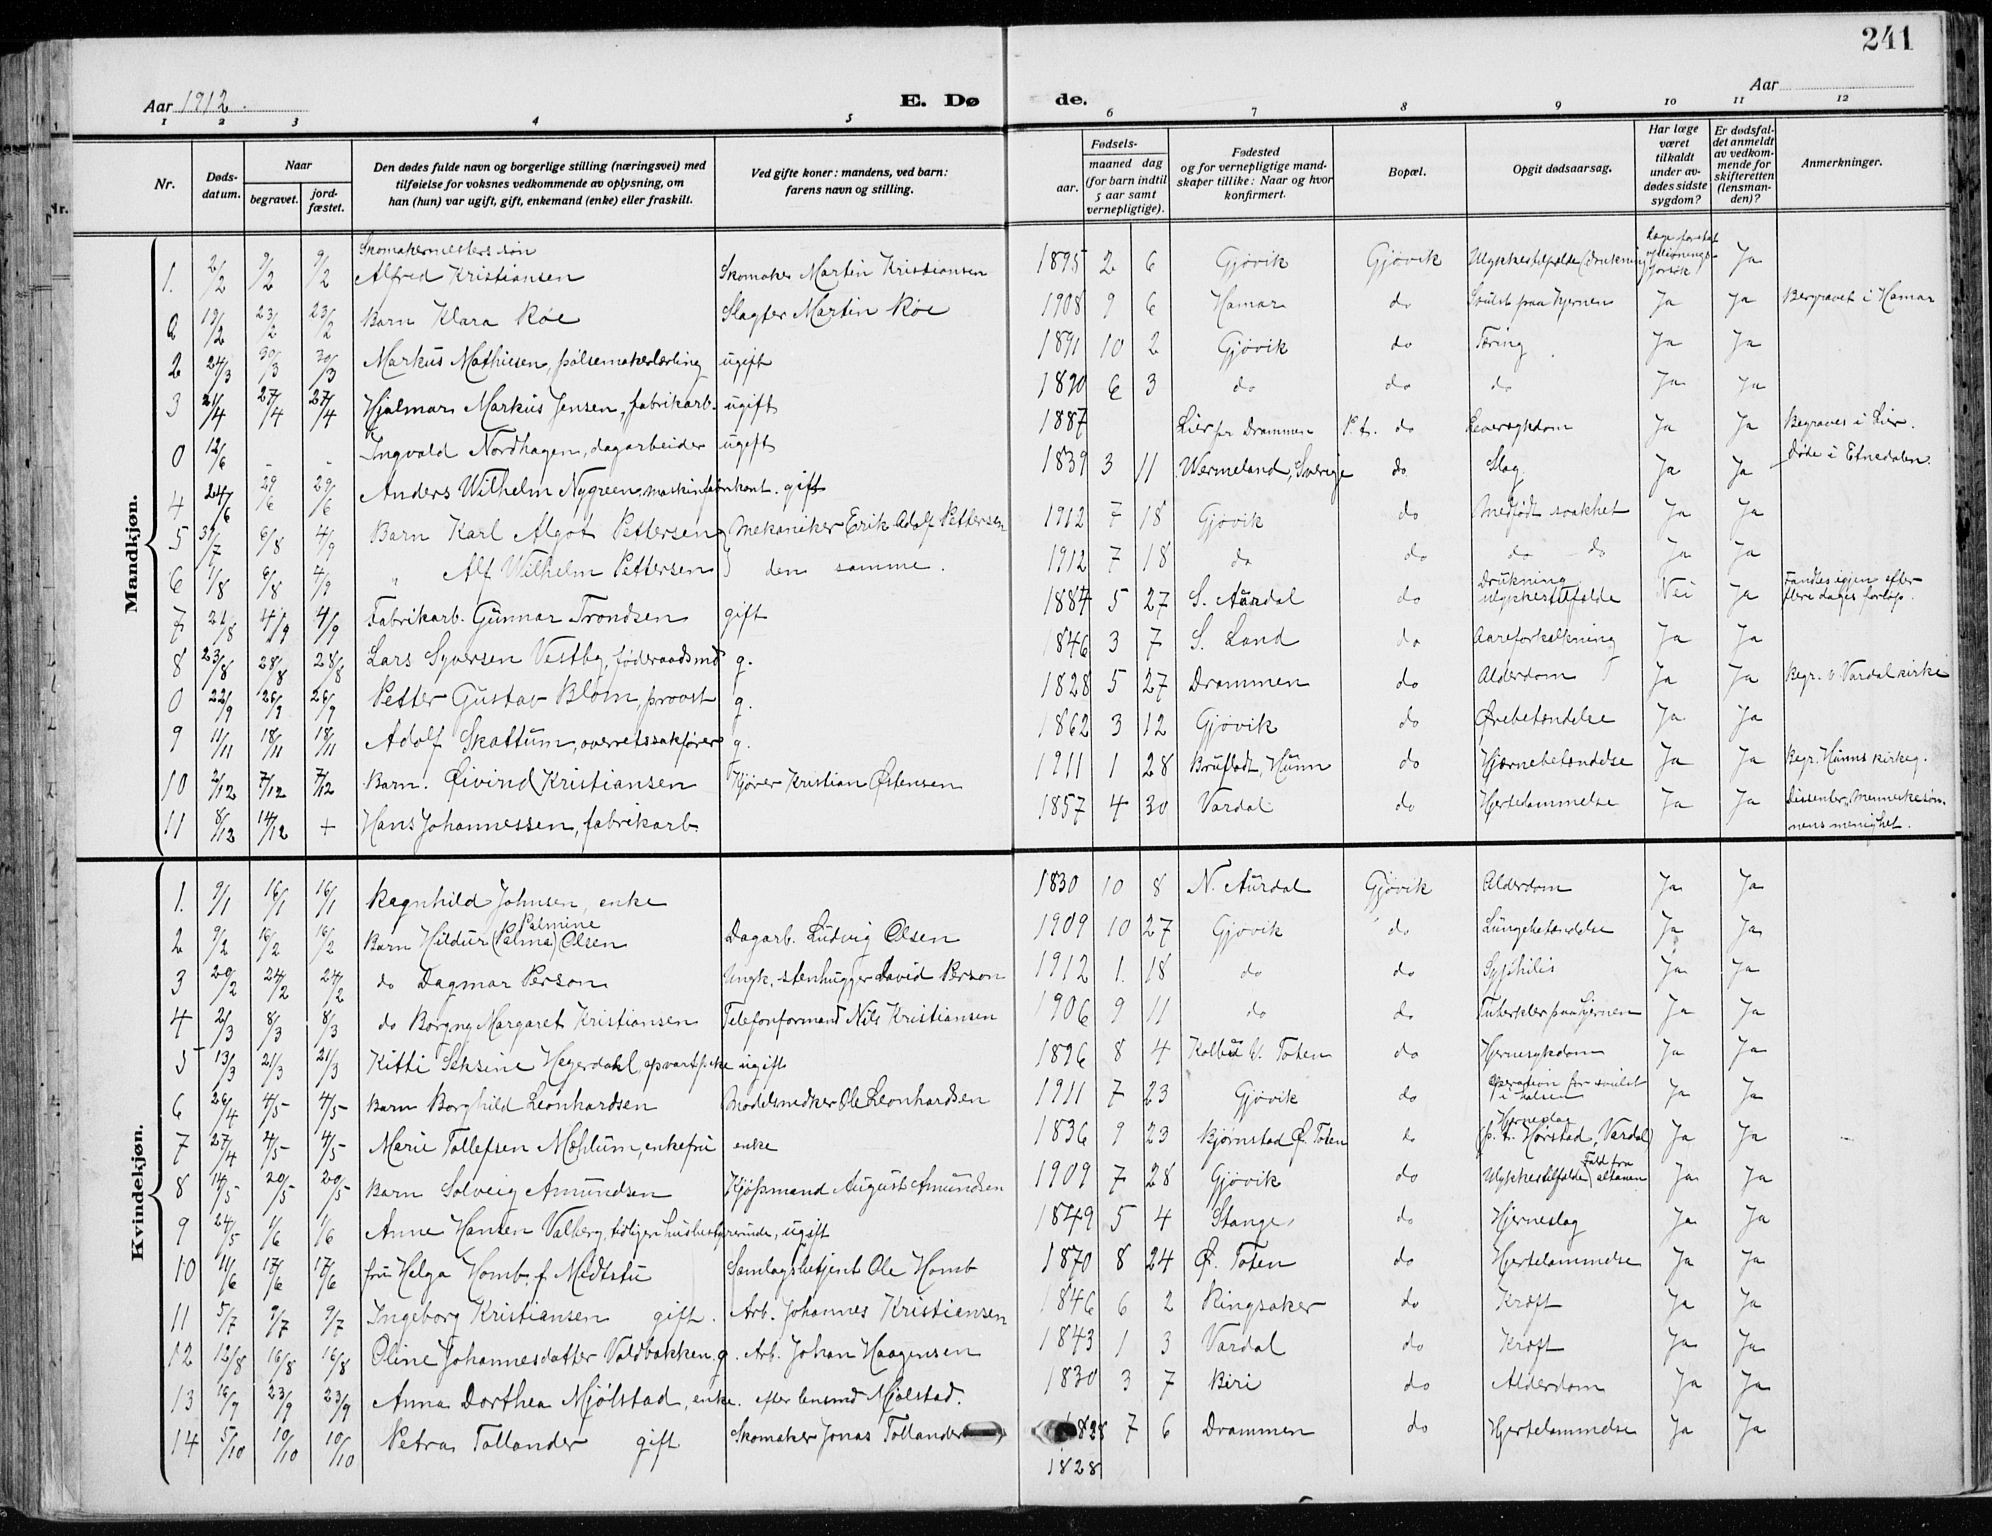 241
Aar 1912. E. Dø de. Aar
1 2 3 4 5 6 7 8 9 10 11 12
Nr. Døds-datum. Naar begravet. jord-fæstet. Den dødes fulde navn og borgerlige stilling (næringsvei) med tilføielse for voksnes vedkommende av oplysning, om han (hun) var ugift, gift, enkemand (enke) eller fraskilt. Ved gifte koner: mandens, ved barn: farens navn og stilling. Fødsels- aar. maaned dag (for barn indtil 5 aar samt vernepligtige). Fødested og for vernepligtige mand-skaper tillike: Naar og hvor konfirmert. Bopæl. Opgit dødsaarsag. Har læge været tilkaldt under av-dødes sidste sygdom? Er dødsfal-det anmeldt av vedkom-mende for skifteretten (lensman-den)? Anmerkninger.
Mandkjøn.
1. 2/2 9/2 9/2 Skomakermesters søn Alfred Kristiansen Skomaker Martin Kristiansen 1895 2 6 Gjøvik Gjøvik Ulykkestilfælde (drukning) Ja
a 19/2 23/2 23/2 Barn Klara Røe Slagter Martin Røe 1908 9 6 Hamar do Svulst paa hjernen Ja Ja Begravet i Hamar
2 24/3 30/3 30/3 Markus Mathiesen, pølsemakerlærling ugift 1891 10 2 Gjøvik do Tæring Ja Ja
3 21/4 27/4 27/4 Hjalmar Markus Jensen, fabrikarb. ugift 1890 6 3 do do do Ja Ja
0 12/6 - - Ingvald Nordhagen, dagarbeider ugift 1887 Lier pr Drammen P.t. do Leversykdom Ja Ja Begraves i Lier.
4 24/6 29/6 29/6 Anders Wilhelm Nygreen, maskinfabrikant. gift 1839 3 11 Wermeland, Sverige do Slag Ja Ja Døde i Etnedalen.
5 31/7 6/8 4/9 Barn Karl Algot Pettersen Mekaniker Erik Adolf Pettersen 1912 7 18 Gjøvik do Medfødt svakhet Ja Ja
6 1/8 6/8 4/9 " Alf Wilhelm Pettersen den samme. 1912 7 18 do do do do Ja Ja
7 21/8 4/9 4/9 Fabrikarb. Gunnar Trondsen gift 1884 5 27 S. Aurdal do Drukning ulykkestilfælde Nei Ja Fandtes igjen efter flere dages forløp.
8 23/8 28/8 28/8 Lars Syversen Vestby, føderaadsmd g. 1846 3 7 S. Land do Aareforkalkning Ja Ja
0 22/9 26/9 26/9 Petter Gustav Blom, provst g. 1828 5 27 Drammen do Alderdom Ja Ja Begr. v. Vardal kirke
9 11/11 18/11 18/11 Adolf Skattum, overretssakfører g. 1862 3 12 Gjøvik do Ørebetændelse Ja Ja
10 2/12 7/12 7/12 Barn. Øivind Kristiansen Kjører Kristian Østensen 1911 1 28 Brufladt, Hunn do Hjærnebetændelse Ja Ja Begr. Hunns kirkeg.
11 8/12 14/12 + Hans Johannessen, fabrikarb. 1857 4 30 Vardal do Hjertelammelse Ja Ja Dissenter, Menneskesøn. nens menighet.
Kvindekjøn.
1. 9/1 16/1 16/1 Ragnhild Johnsen, enke 1830 10 8 N. Aurdal Gjøvik Alderdom Ja Ja
2 9/2 16/2 16/2 Barn Hildur (Palma) Palmine Olsen Dagarb. Ludvig Olsen 1909 10 27 Gjøvik do Lungebetændelse Ja Ja
3 20/2 24/2 24/2 do Dagmar Person Ungk. stenhugger David Person 1912 1. 18 do do Syphilis Ja Ja
4 2/3 8/3 8/3 do Borgny Margaret Kristiansen Telefonformand Nils Kristiansen 1906 9 11 do do Tuberkler paa hjernen Ja Ja
5 13/3 21/3 21/3 Kitti Seksine Hegerdahl, opvartpike ugift 1896 8 4 Kolbu V. Toten do Hjernesykdom Ja Ja
6 26/4 4/5 4/5 Barn Borghild Leonhardsen Modelsnedker Ole Leonhardsen 1911 7 23 Gjøvik do Operation for svulst i halsen Ja Ja
7 27/4 4/5 4/5 Marie Tollefsen Mæhlum, enkefru enke 1836 9 23 Bjørnstad Ø. Toten do Hjerneslag (p.t. Hørstad, Vardal) Ja Ja
8 14/5 20/5 20/5 Barn Solveig Amundsen Kjøpmand August Amundsen 1909 7 28 Gjøvik do Ulykkestilfælde (Fald fra altanen Ja Ja
9 24/5 1/6 1/6 Anne Hansen Valberg, tidligere husbestyrerinde, ugift 1849 5 4 Stange do Hjerneslag Ja Ja
10 11/6 17/6 17/6 fru Helga Homb, f. Midtstu Samlagsbetjent Ole Homb 1870 8 24 Ø. Toten do Hjertelammelse Ja Ja
11 5/7 9/7 9/7 Ingeborg Kristiansen gift. Arb. Johannes Kristiansen 1846 6 2 Ringsaker do Kræft Ja Ja
12 12/8 16/8 16/8 Oline Johannesdatter Valdbakken, g. Arb. Johan Haagensen 1843 1 3 Vardal do Kræft Ja Ja
13 16/9 23/9 23/9 Anna Dorthea Mjølstad, enke. efter lensmd Mjølstad. 1830 3 7 Biri do Alderdom Ja Ja
14 5/10 10/10 10/10 Petra Tollander gift Skomaker Jonas Tollander 1828 7 6 Drammen do Hjertelammelse Ja Ja
1828